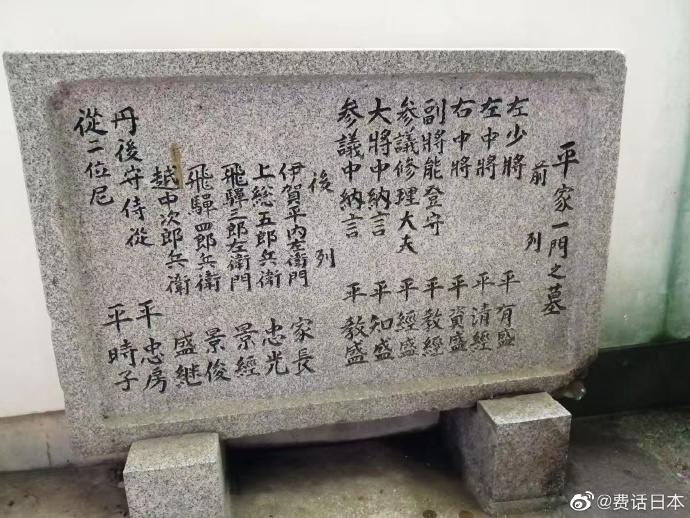 平家一門之墓
前列
左少將 平有盛
左中將 平清經
右中將 平資盛
副將能登守 平教經
參議修理大夫 平經盛
大將中納言 平知盛
參議中納言 平教盛
後列
伊賀平内左衛門 家長
上総五郎兵衛 忠光
飛騨三郎左衛門 景經
飛騨四郎兵衛 景俊
越中次郎兵衛 盛継
丹後守侍從 平忠房
從二位尼 平時子
@费话日本